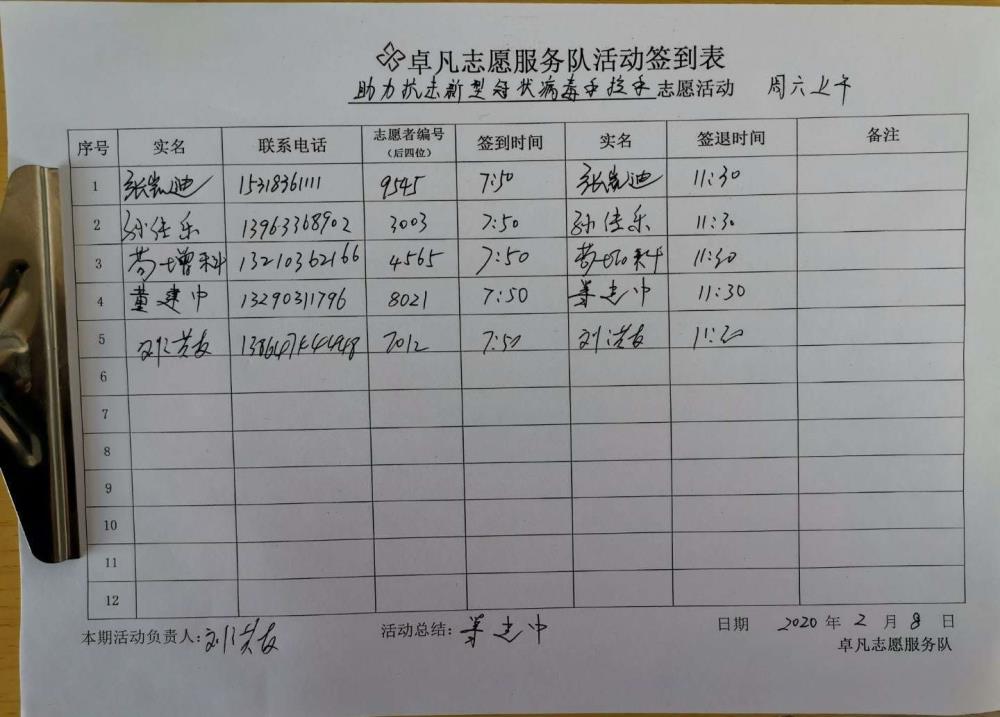 卓凡志愿服务队活动签到表
助力抗击新型冠状病毒手拉手志愿活动 周六上午
序号 实名 联系电话 志愿者编号（后四位） 签到时间 实名 签退时间 备注
1 张凯迪 15318361111 9545 7:50 张凯迪 11:30
2 孙佳乐 13963368902 3003 7:50 孙佳乐 11:30
3 增科 13210362166 4565 7:50 11:30
4 董建中 13290311796 8021 7:50 董建中 11:30
5 刘洪友 7012 7:50 刘洪友 11:30
6
7
8
9
10
11
12
本期活动负责人:刘洪友 活动总结:董建中 日期 2020 年 2 月 8 日
卓凡志愿服务队